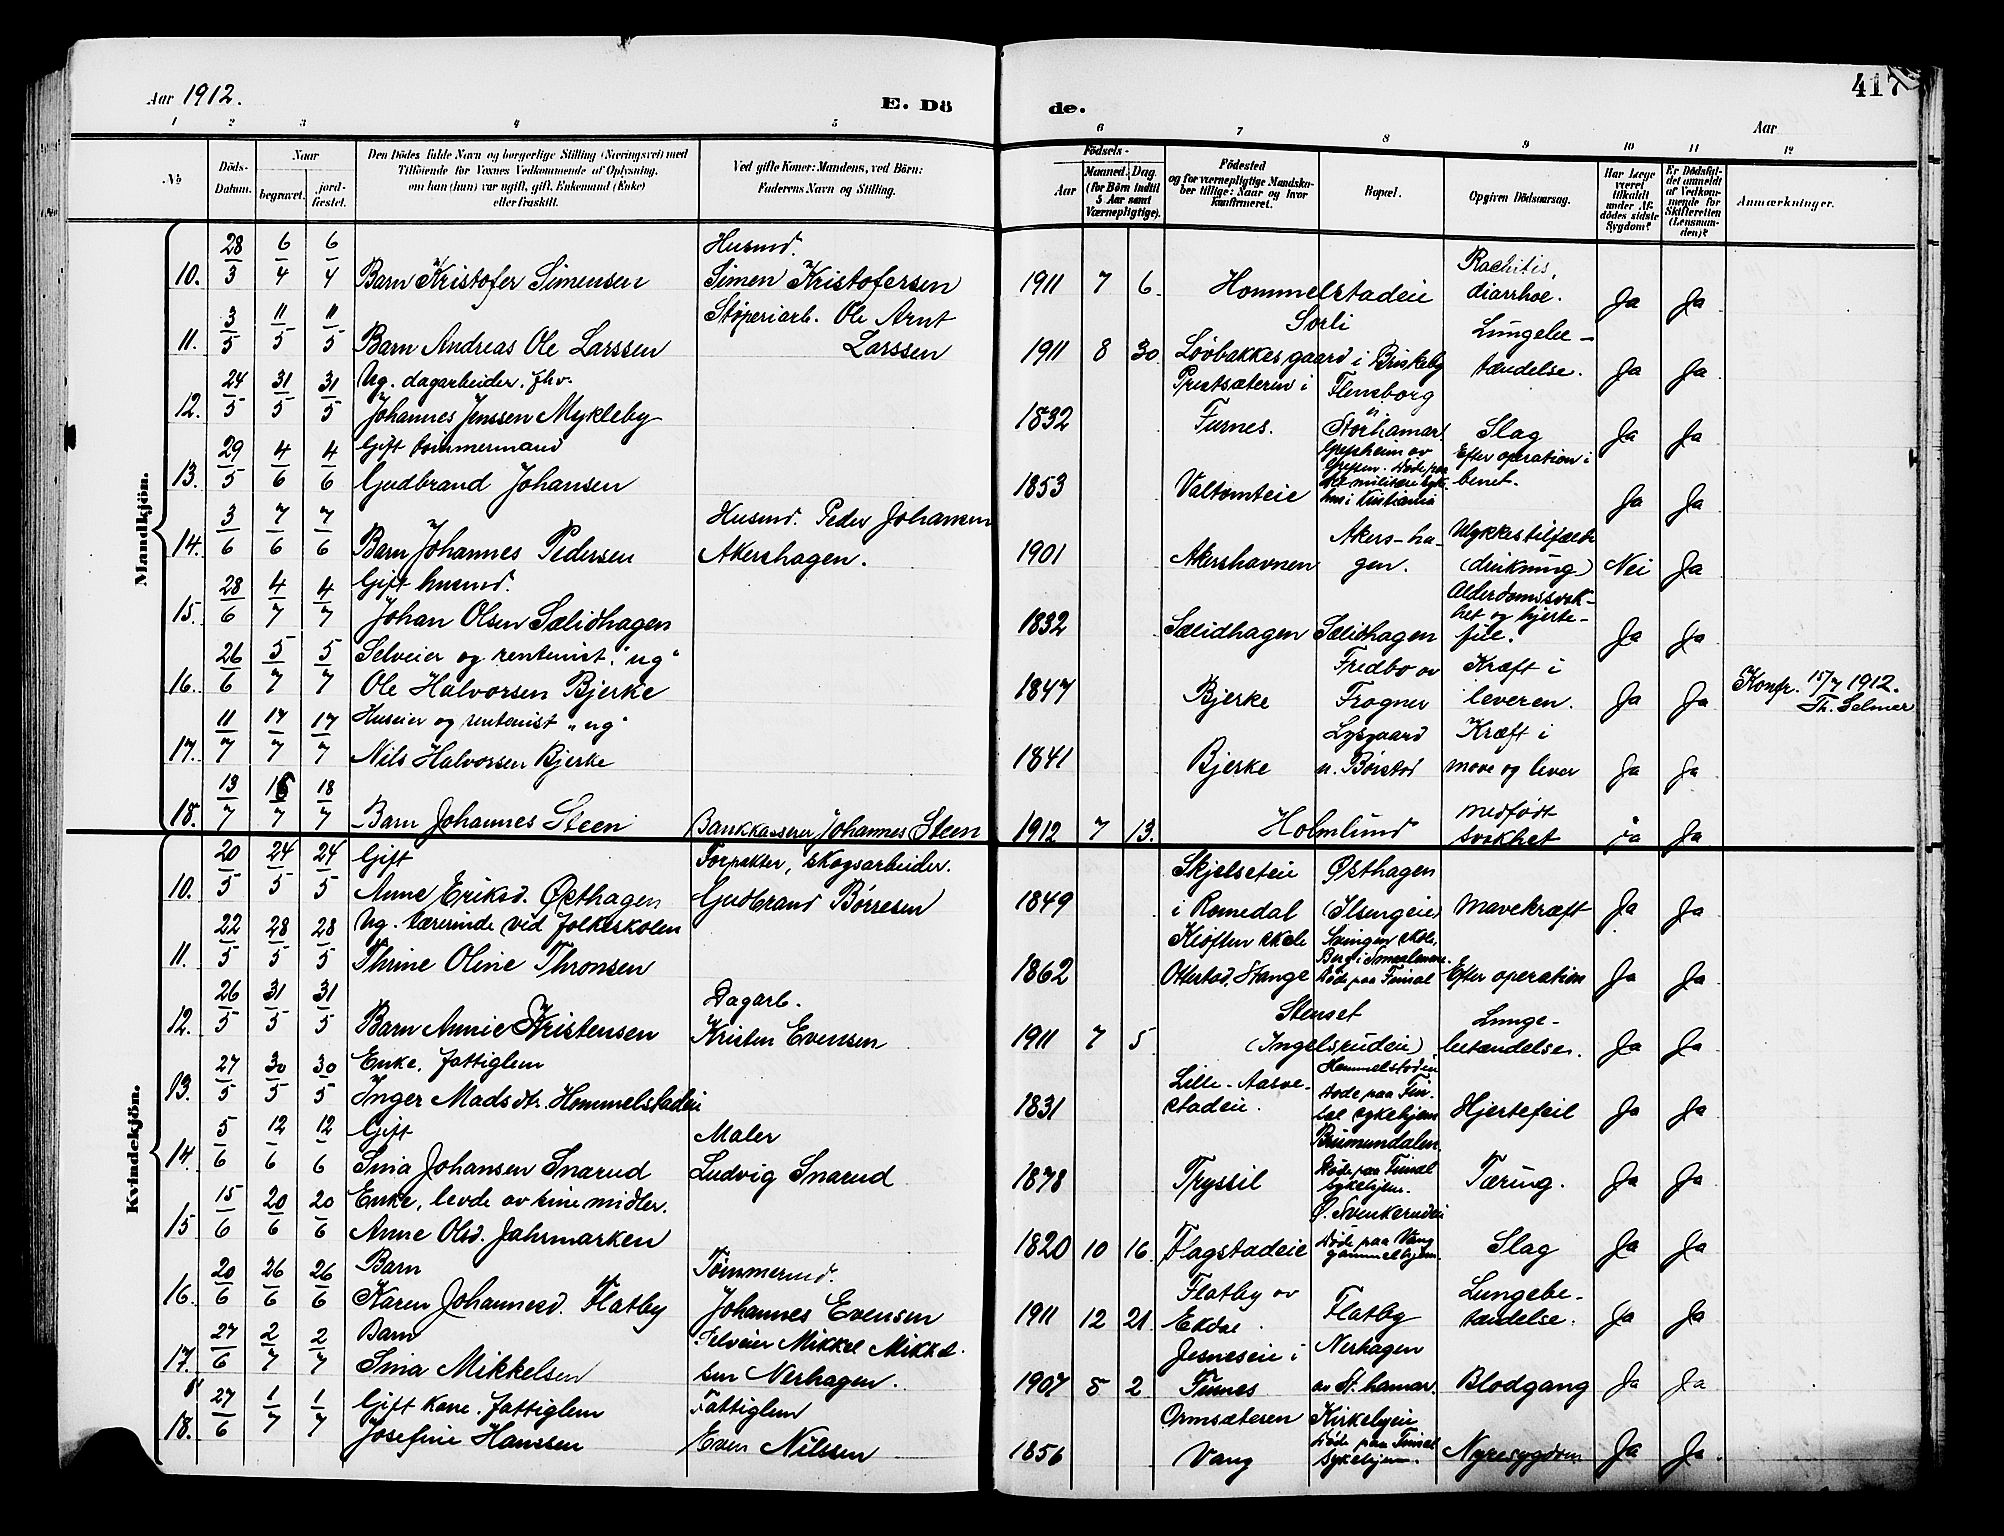 Aar 1912.
E. Dö
de.
417
Aar
1 2 3 4 5 6 7 8 9 10 11 12
No
Döds-Datum.
Naar
begravet.
jord-fæstet.
Den Dödes fulde Navn og borgerlige Stilling (Næringsvei) med
Tilföiende for Voxnes Vedkommende af Oplysning,
om han (hun) var ugift, gift, Enkemand (Enke)
eller fraskilt.
Ved gifte Koner: Mandens, ved Börn:
Faderens Navn og Stilling.
Födsels-
Aar
Maaned. Dag.
(for Börn indtil
5 Aar samt
Værnepligtige).
Födested
og for værnepligtige Mandska-
ber tillige: Naar og hvor
konfirmeret.
Bopæl.
Opgiven Dödsaarsag.
Har Læge
været
tilkaldt
under Af-
dödes sidste
Sygdom?
Er Dödsfal-
det anmeldt
af Vedkom-
mende for
Skifteretten
(Lensman-
den)?
Anmærkninger.
Mandkjön.
28/3 6/4 6/4 Husmd. Rachitis,
10. Barn Kristofer Simensen Simen Kristofersen 1911 7 6. Hommelstadeie diarrhoe. Ja Ja
3/5 11/5 11/5 Støperiarb. Ole Arnt Sorli Lungebe-
11. Barn Andreas Ole Larssen Larssen 1911 8 30. Løvbakkesgaard i Briskeby tændelse. Ja Ja
24/5 31/5 31/5 Ug. dagarbeider. fhv. Prestsæteren i Flensborg
12. Johannes Jenssen Mykleby 1832 Furnes. i Storhamar Slag Ja Ja
29/5 4/6 4/6 Gift tømmermand Efter operation i
13. Gudbrand Johansen 1853 Valtomteie Døde paa benet. Ja Ja
3/6 7/6 7/6 Husmd. Peder Johansen Akersha- Ulykkestilfælde
14. Barn Johannes Pedersen Akershagen. 1901 Akershavnen gen. (drukning) Nei Ja
28/6 4/7 4/7 Gift husmd. Alderdomssvak-
het og hjerte-
15. Johan Olsen Sælidhagen 1832 Sælidhagen Sælidhagen feil. Ja Ja
26/6 5/7 5/7 Selveier og rentenist. "ug" Fredbo av Kræft i
16. Ole Halvorsen Bjerke 1847 Bjerke Frogner leveren. Ja Ja Konfr. 15/7 1912.
Th. Selmer
11/7 17/7 17/7 Huseier og rentenist "ug" Lysgaard Kræft i
17. Nils Halvorsen Bjerke 1841 Bjerke n. Børstad mave og lever Ja Ja
13/7 18/7 18/7 medfødt
18. Barn Johannes Steen Bankkasserer Johannes Steen 1912 7 13. Holmlund svakhet ja Ja
Kvindekjön.
20/5 24/5 24/5 Gift Forpakter, skogsarbeider. Skjelseteie Østhagen
10. Anne Eriksd. Østhagen Gudbrand Børresen 1849 i Romedal (Ilsengeie) Mavekræft Ja Ja
22/5 28/5 28/5 Ug. lærerinde ved folkeskolen Kløften skole Svingen skole,
11. Thrine Oline Thronsen 1862 Ottestad, Stange Døde paa Finsal Efter operation Ja Ja
26/5 31/5 31/5 Dagarb. Stenset Lunge-
12. Barn Annie Kristensen Kristen Evensen 1911 7 5 (Ingelsrudeie) betændelse. Ja Ja
27/5 30/5 30/5 Enke, fattiglem Lille-Aasve- Hommelstadeie
13. Inger Madsdtr. Hommelstadeie 1831 stadeie. Døde paa Fin-
sal sykehjem Hjertefeil Ja Ja
5/6 12/6 12/6 Gift Maler Brumundalen.
14. Sina Johansen Snarud Ludvig Snarud 1878 Tryssil Døde paa Finsal
sykehjem. Tæring. Ja Ja
15/6 20/6 20/6 Enke, levde av sine midler. Ø. Svenkerudeie
15. Anne Olsd. Jahrmarken 1820 10 16. Flagstadeie Døde paa Vang
gammelhjem. Slag Ja Ja
20/6 26/6 26/6 Barn Tømmermd. Flatby av Lungebe-
16. Karen Johannesd. Flatby Johannes Evensen 1911 12 21. Ekdal. Flatby tændelse. Ja Ja
27/6 2/7 2/7 Barn Selveier Mikkel Mikkel- Jesneseie i Nerhagen
17. Sina Mikkelsen sen Nerhagen. 1907 5 2 Furnes av St. hamar. Blodgang Ja Ja
27/6 1/7 1/7 Gift kone. fattiglem Fattiglem Ormsæteren Kirkebyeie
18. Josefine Hanssen Even Nilssen 1856 Vang Døde paa Finsal
sykehjem. Nyresygdom Ja Ja